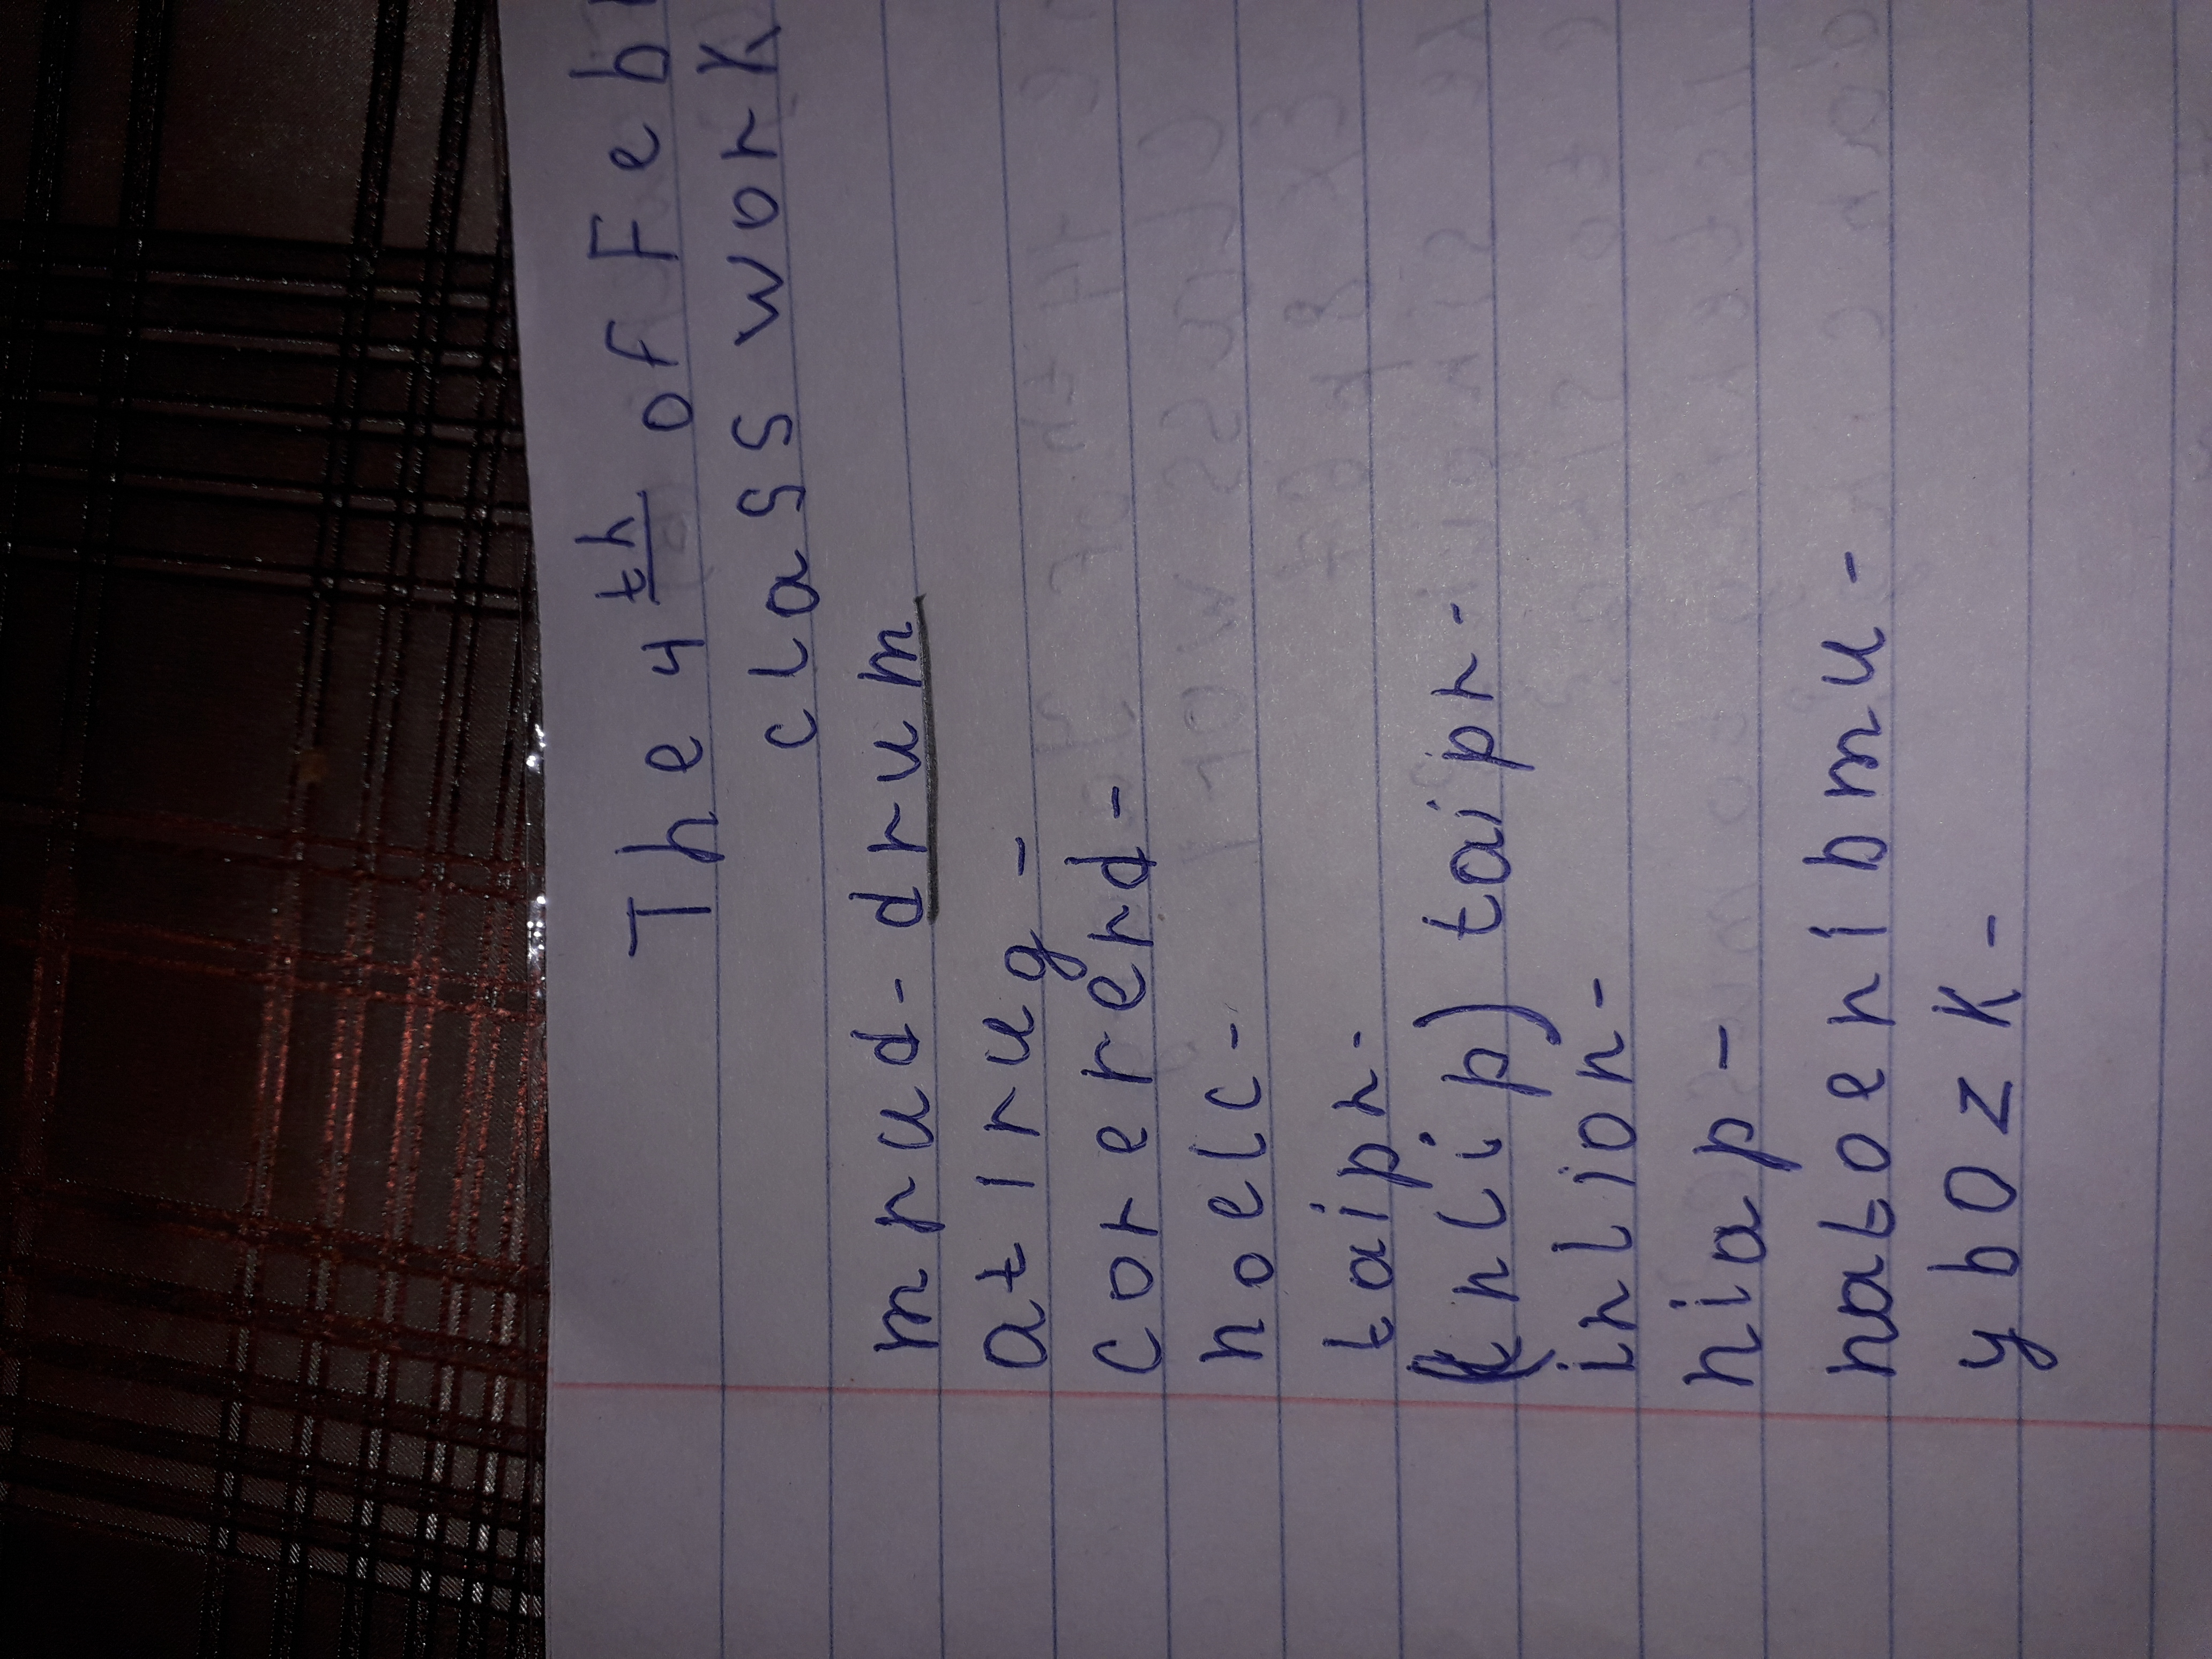 The 4th of Feb
class work
mrud - drum
atirug -
corererd -
noelc -
taipr -
inlion -
niap -
natoenibmu -
ybozk -